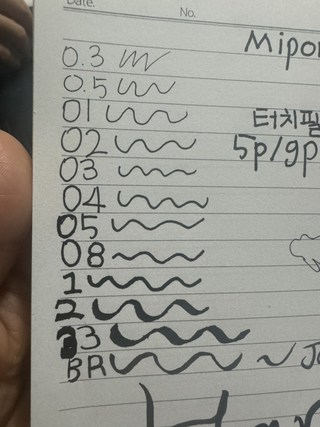 Date. No.
0.3
0.5
01
02
03
04
05
08
1
2
3
BR
터치필
5p/9p